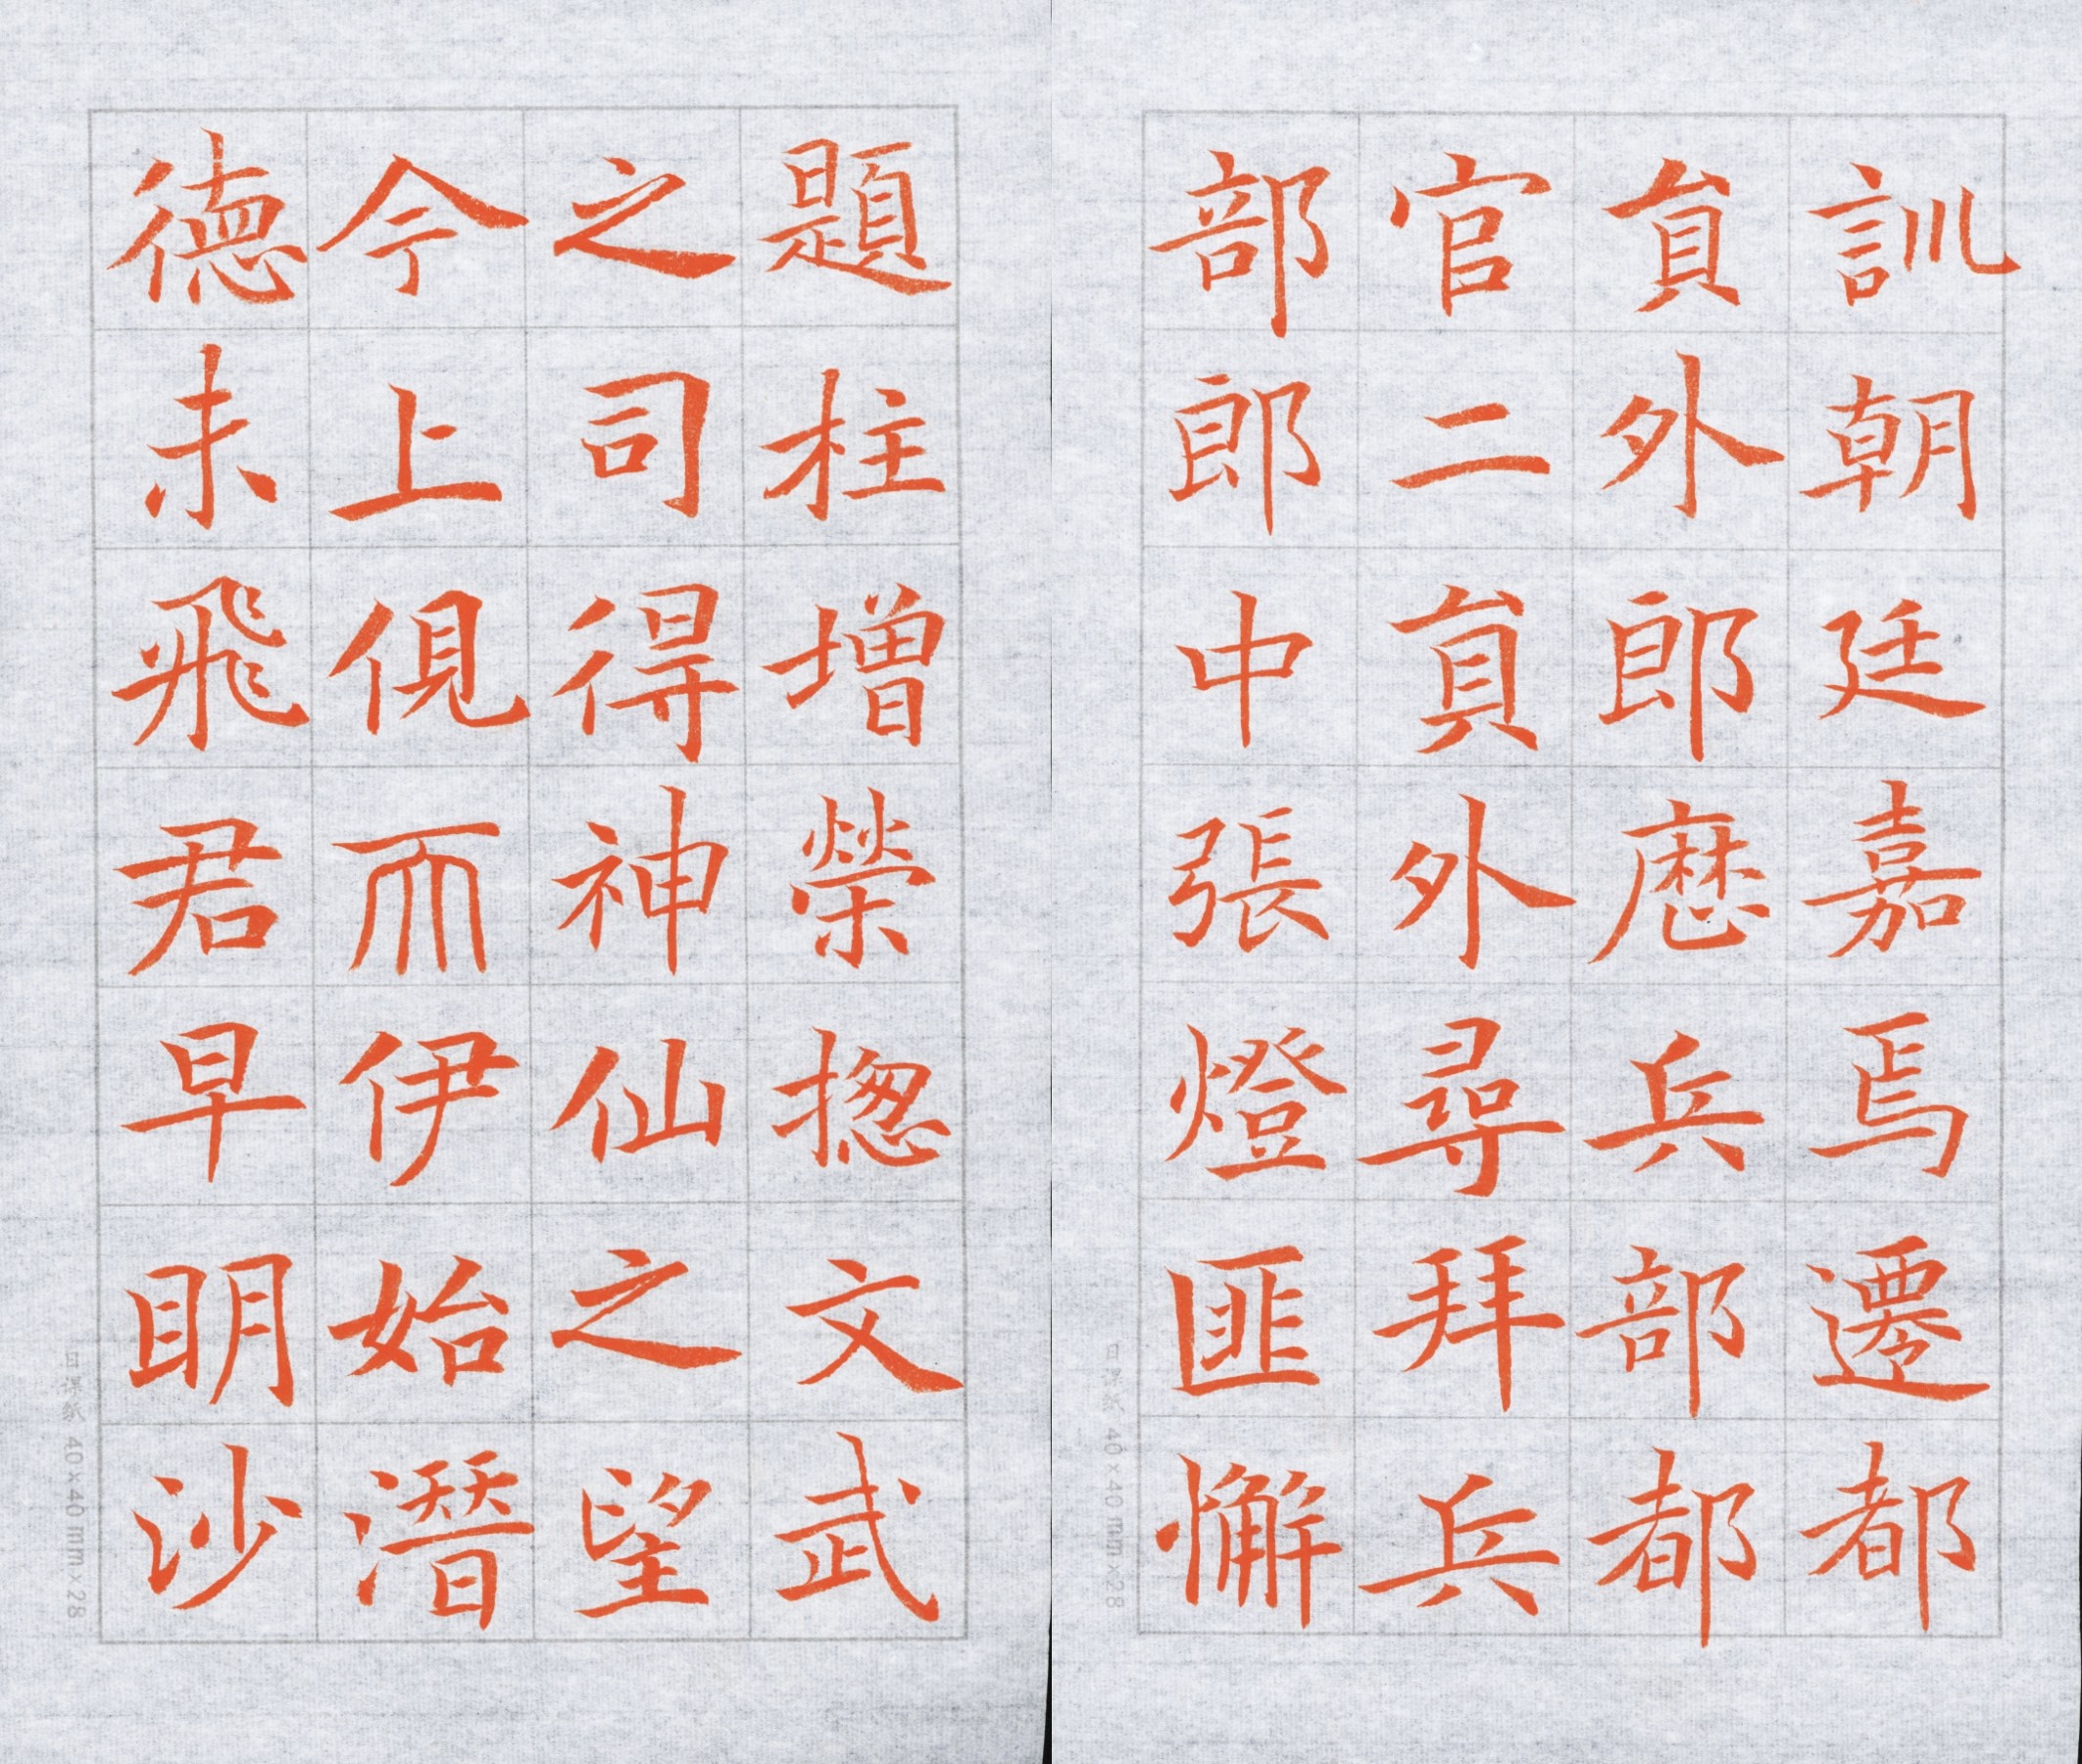 訓朝廷嘉焉遷都
貟外郎歷兵部都
官二貟外尋拜兵
部郎中張燈匪懈
題柱增榮揔文武
之司得神仙之望
今上俔而伊始潛
德未飛君早眀沙
40×40mm×28
日课紙 40×40mm×28